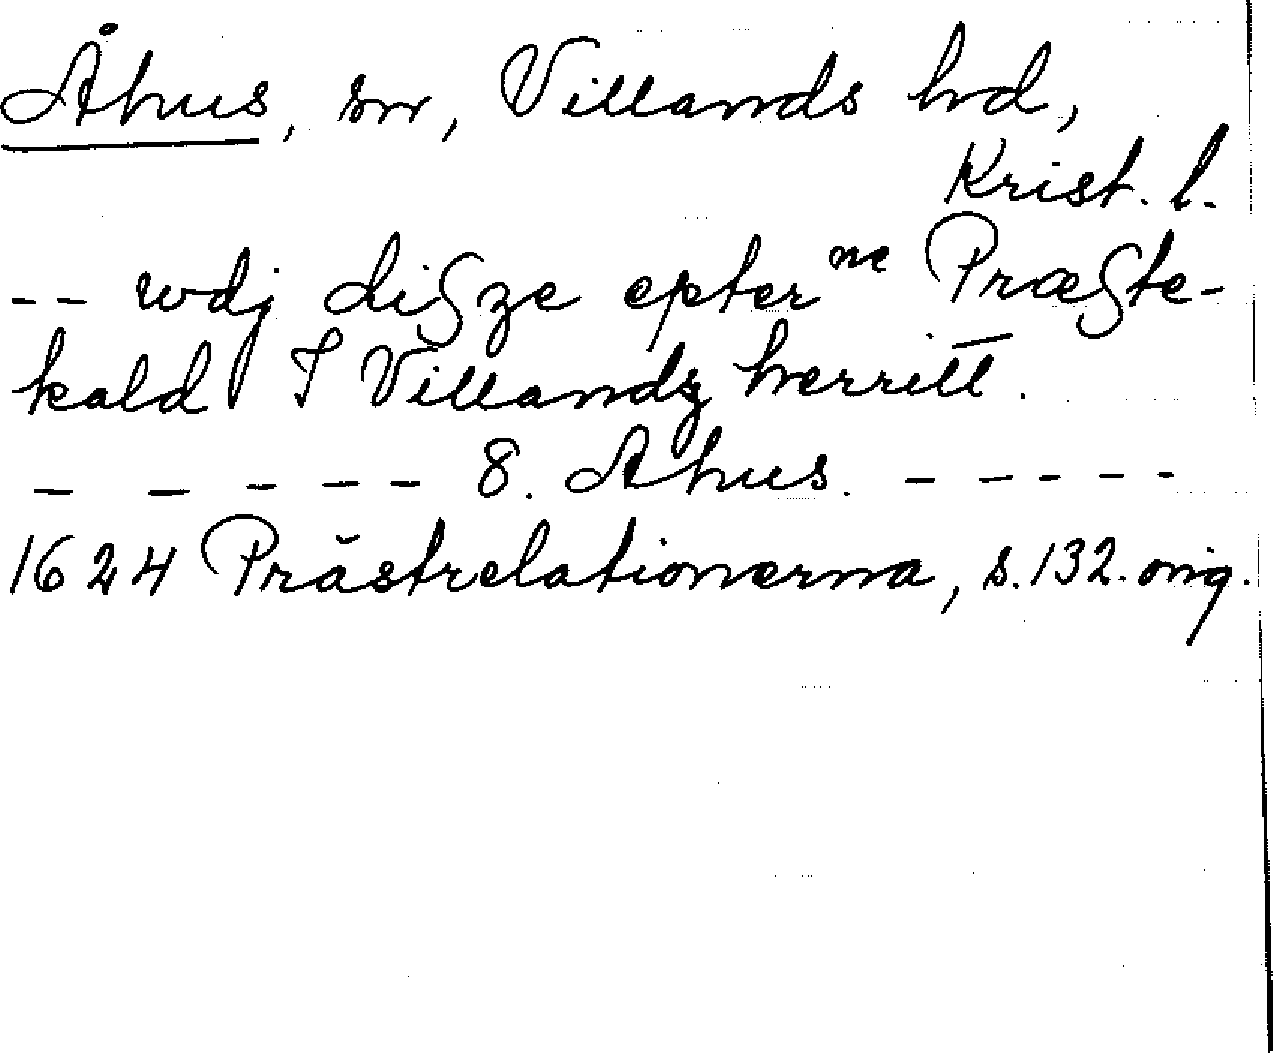 Åhus, sn, Villands hd,
Krist. l.
-- wdj dißze epterⁿᵉ Præßte-
kald I Villandz herritt.
- - - - - 8. Ahus. - - - - -
1624 Prästrelationerna, s. 132. orig.